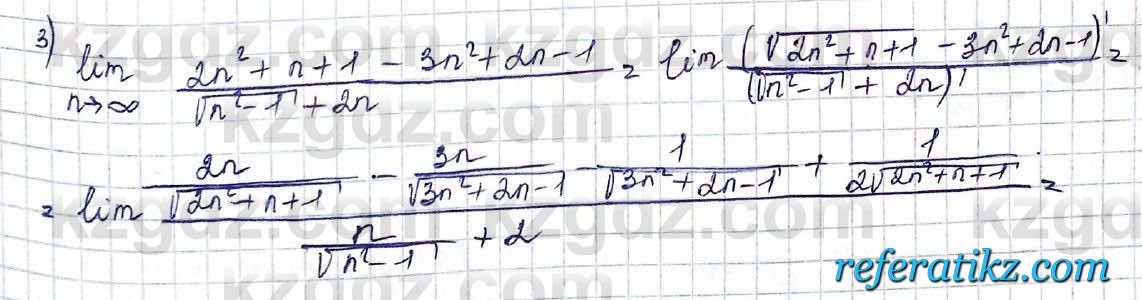 3) lim n→∞ (2n² + n + 1 - 3n² + 2n - 1) / (√(n² - 1) + 2n) = lim (√(2n² + n + 1) - 3n² + 2n - 1)' / (√(n² - 1) + 2n)' =
= lim (2n/√(2n² + n + 1) - 3n/√(3n² + 2n - 1) - 1/√(3n² + 2n - 1) + 1/(2√(2n² + n + 1))) / (n/√(n² - 1) + 2) =
referatikz.com